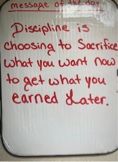 message of the day
Discipline is
choosing to Sacrifice
what you want now
to get what you
earned Later.